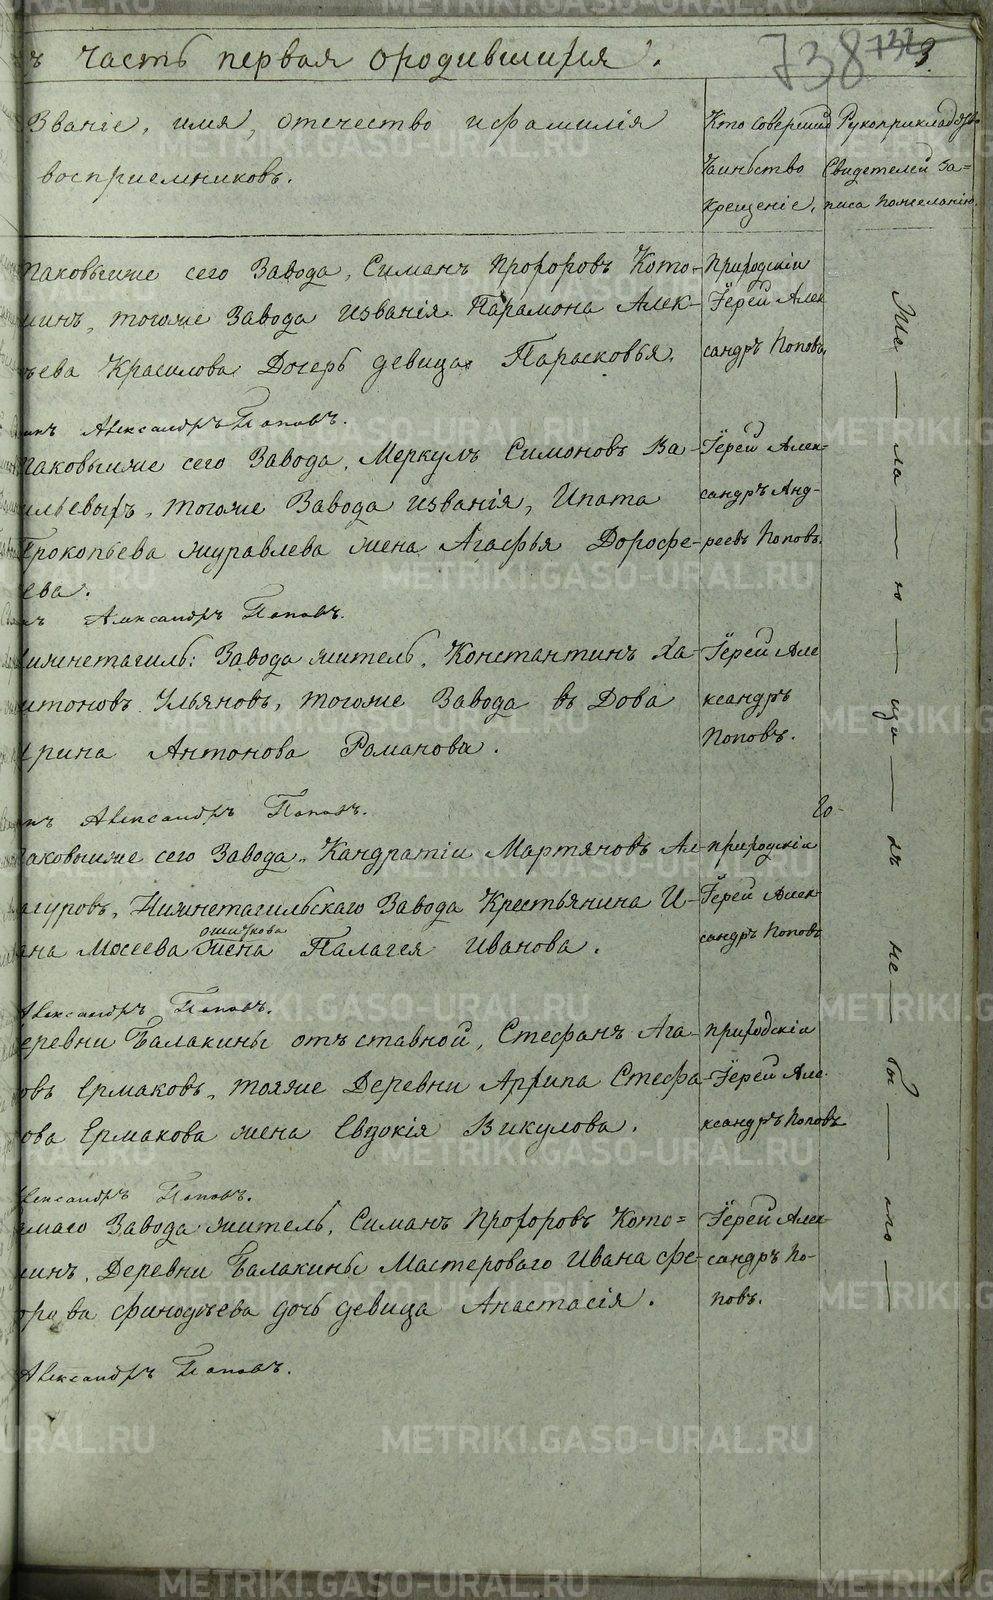 ъ часть первая ородившихся.
738 732 3.
Званіе, имя, отечество ифамилія
восприемниковъ.
Кто совершил
таинство
крещеніе,
Рукоприкладство
Свидетелей за=
писа пожеланію.
паковыиже сего Завода, Симанъ Прохоровъ Кото-
шинъ, тогоже Завода изванія Парамона Алек-
ъева Красилова Дочерь девица Парасковья.
Приходскіи
Іерей Алек
сандръ Поповъ,
Александръ Поповъ.
паковыиже сего Завода, Меркулъ Симоновъ Ва-
ильевыхъ, тогоже Завода изванія, Ипата
Прокопьева журавлева жена Агафья Дорофе-
ева.
Іерей Алек-
сандръ Анд-
реевъ Поповъ.
Александръ Поповъ.
ижнетагиль: Завода житель, Константинъ Ха-
итоновъ Ульяновъ, тогоже Завода въ Дова
Ирина Антонова Романова.
Іерей Але
ксандръ
Поповъ.
Александръ Поповъ.
аковыиже сего Завода, Кандратіи Мартяновъ Ал-
агуровъ, Нижнетагильскаго Завода Крестьянина И-
ана Мосеева Ошиткова жена Палагея Иванова.
приходскіи
Іерей Алек-
сандръ Поповъ
Александръ Поповъ.
еревни Балакины отъставной, Стефанъ Ага-
овъ Ермаковъ, тояже Деревни Архипа Стефа-
ова Ермакова жена Евдокія Викулова.
приходскіи
Іерей Але-
ксандръ Поповъ
Александръ Поповъ.
амаго Завода житель, Симанъ Прохоровъ Кото=
шинъ, Деревни Балакины Мастероваго Ивана Фе-
орова Финодѣева дочь девица Анастасія.
Іерей Алек-
сандръ По-
повъ.
Александръ Поповъ.
Же — ла — ю — ща — хъ не — бы — ло —
METRIKI.GASO-URAL.RU